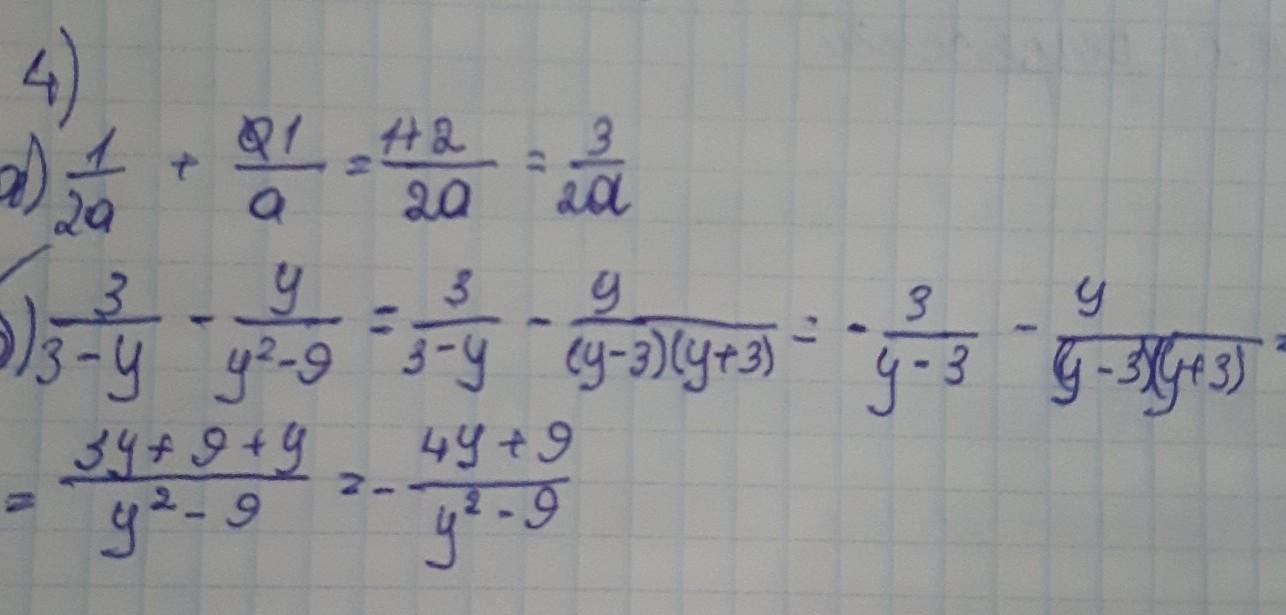 4)
a) 1/2a + 1/a = 1+2/2a = 3/2a
б) 3/3-y - y/y²-9 = 3/3-y - y/(y-3)(y+3) = - 3/y-3 - y/(y-3)(y+3) =
= 3y+9+y/y²-9 = - 4y+9/y²-9